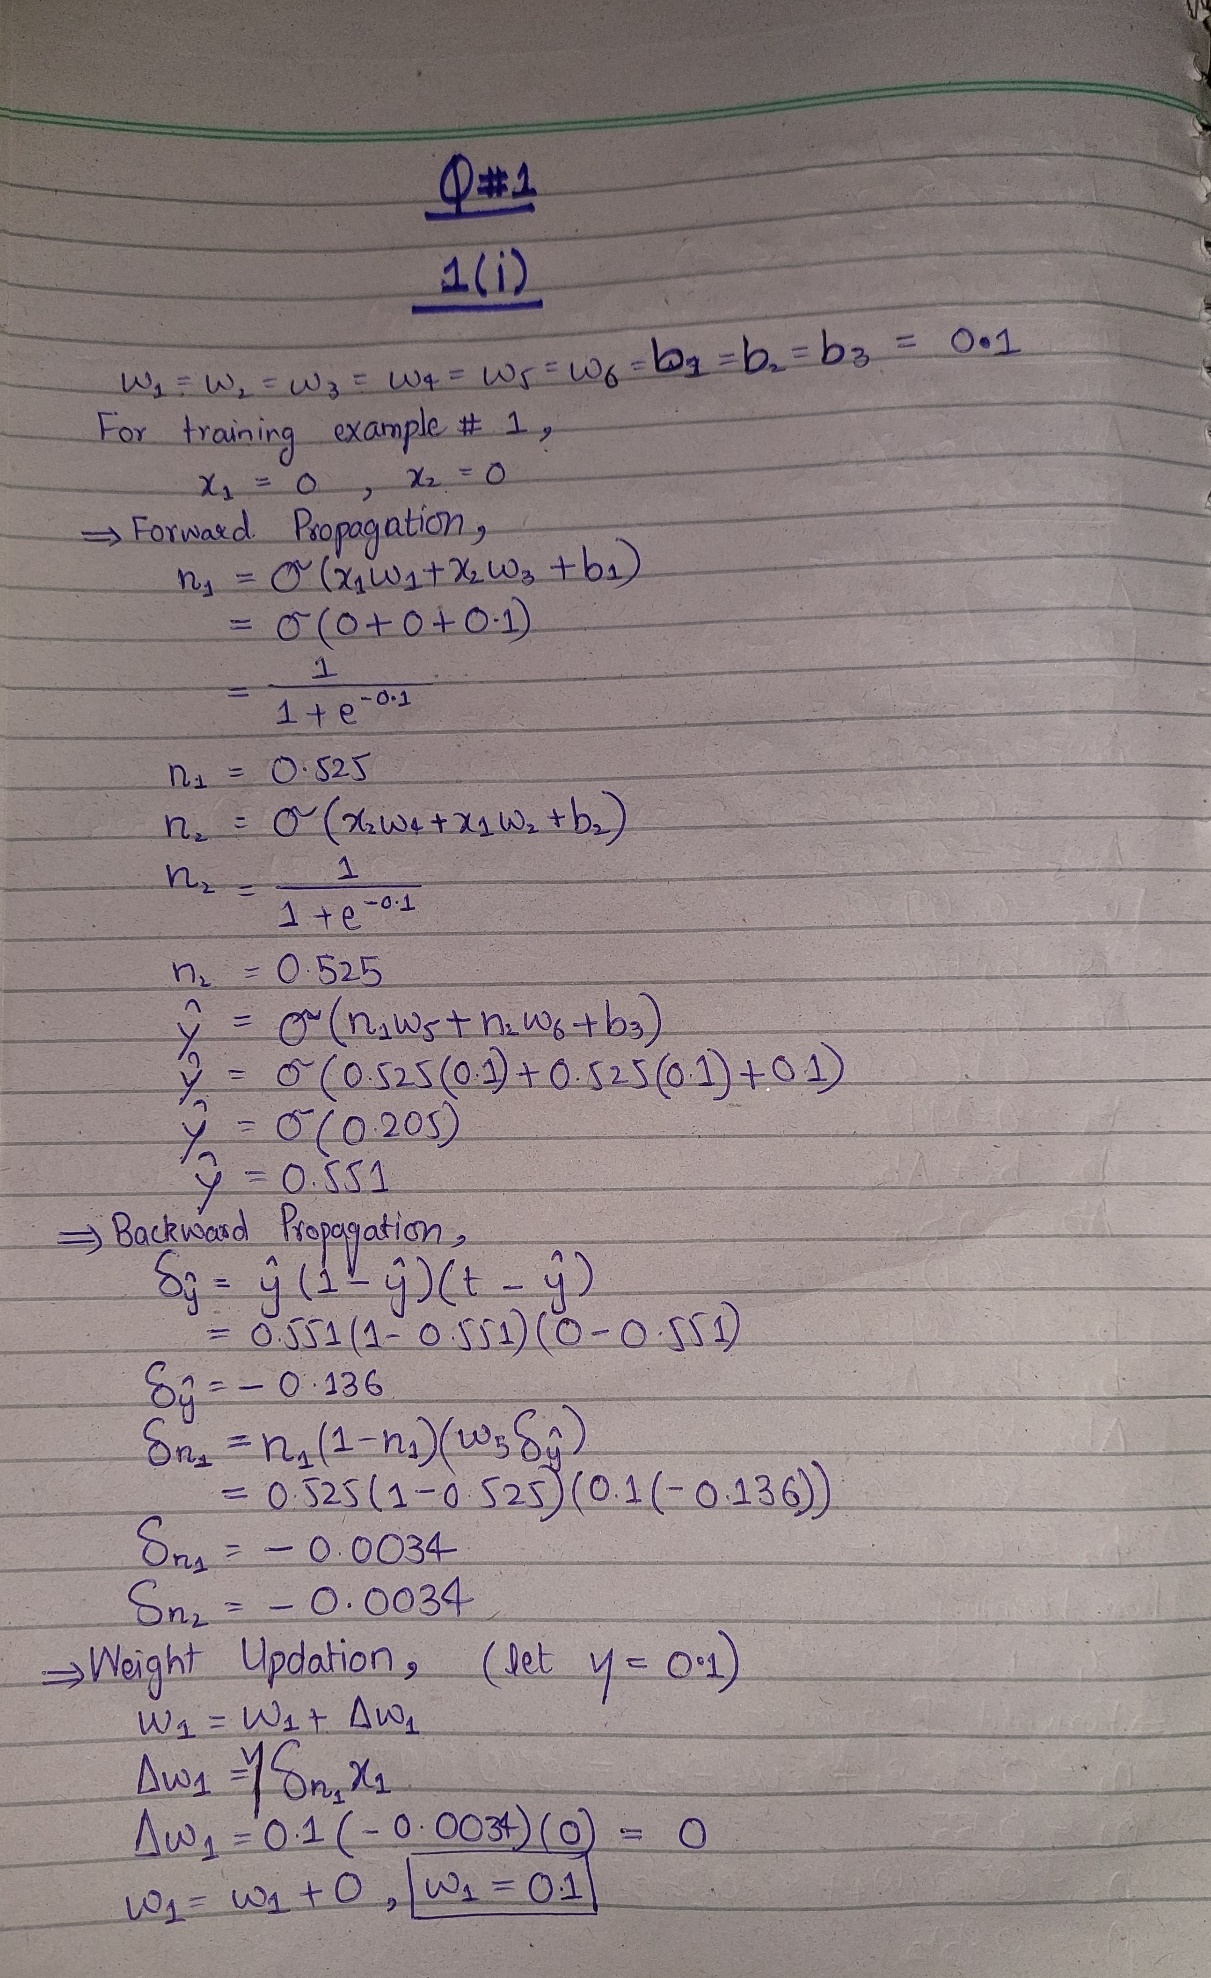 Q#1
1(i)
w₁ = w₂ = w₃ = w₄ = w₅ = w₆ = b₁ = b₂ = b₃ = 0.1
For training example # 1,
x₁ = 0 , x₂ = 0
⇒ Forward Propagation,
n₁ = σ(x₁w₁+x₂w₃+b₁)
= σ(0+0+0.1)
= 1/(1+e^-0.1)
n₁ = 0.525
n₂ = σ(x₂w₄+x₁w₂+b₂)
n₂ = 1/(1+e^-0.1)
n₂ = 0.525
ŷ = σ(n₁w₅+n₂w₆+b₃)
ŷ = σ(0.525(0.1)+0.525(0.1)+0.1)
ŷ = σ(0.205)
ŷ = 0.551
⇒ Backward Propagation,
δŷ = ŷ(1-ŷ)(t-ŷ)
= 0.551(1-0.551)(0-0.551)
δŷ = -0.136
δn₁ = n₁(1-n₁)(w₅δŷ)
= 0.525(1-0.525)(0.1(-0.136))
δn₁ = -0.0034
δn₂ = -0.0034
⇒ Weight Updation, (let η = 0.1)
w₁ = w₁ + Δw₁
Δw₁ = ηδn₁x₁
Δw₁ = 0.1(-0.0034)(0) = 0
w₁ = w₁ + 0 , w₁ = 0.1